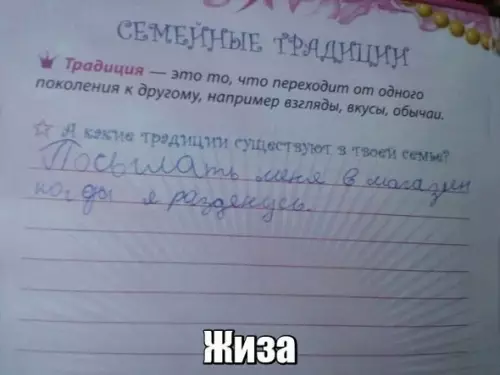 СЕМЕЙНЫЕ ТРАДИЦИИ
Традиция — это то, что переходит от одного
поколения к другому, например взгляды, вкусы, обычаи.
А какие традиции существуют в твоей семье?
Посылать меня в магазин
когды я разденусь.
Жиза